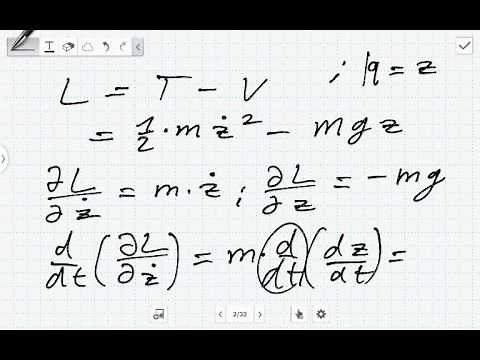 L = T - V ; q = z
= 1/2 · m ż² - m g z
∂L/∂ż = m · ż ; ∂L/∂z = - m g
d/dt (∂L/∂ż) = m · d/dt (dz/dt) =
2/33